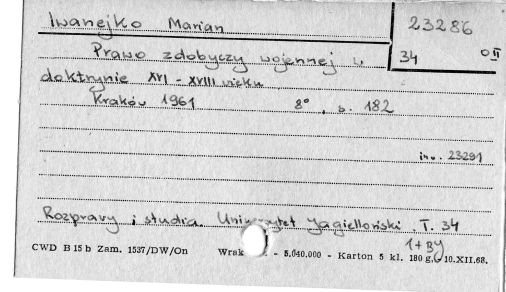 Iwanejko Marian
23286
Prawo zdobyczy wojennej w
34 0 II
doktrynie XVI - XVIII wieku
Kraków 1961 8° , s. 182
inw. 23291
Rozprawy i studia. Uniwersytet Jagielloński. T. 34
1 + By
CWD B 15 b Zam. 1537/DW/On Wrak - 5.040.000 - Karton 5 kl. 180 g. 10.XII.68.